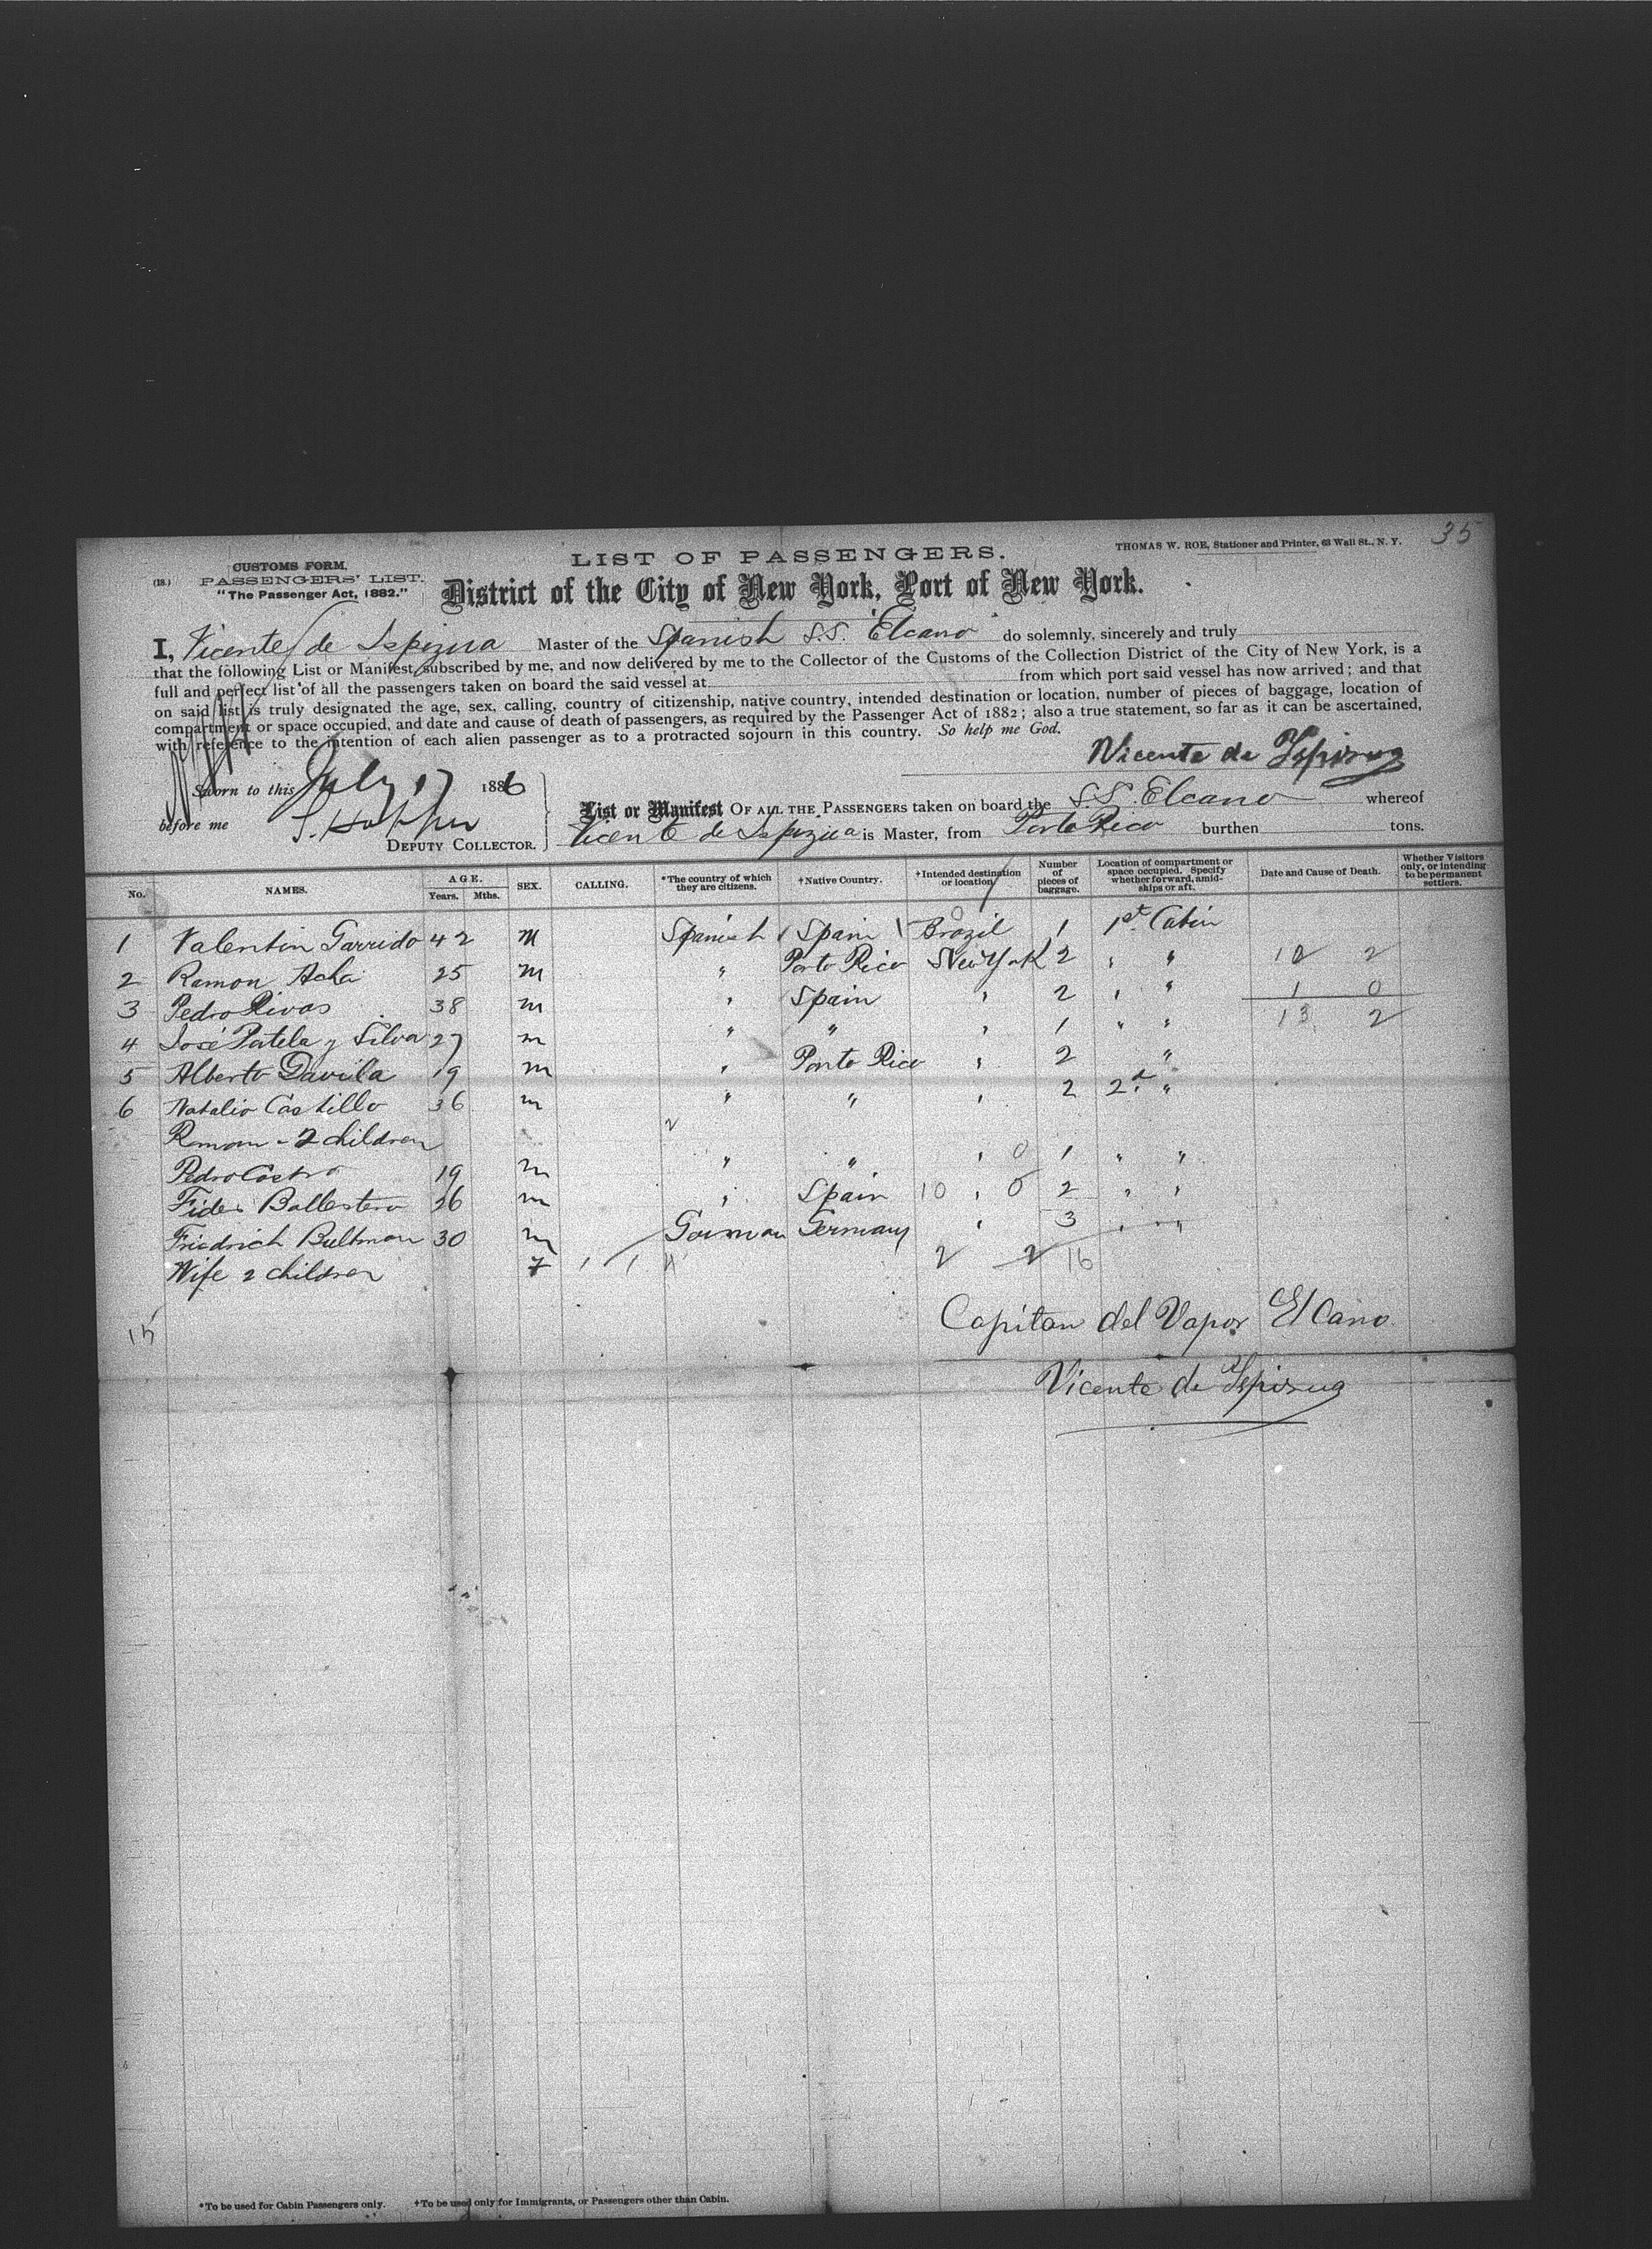 35
THOMAS W. ROE, Stationer and Printer, 63 Wall St., N. Y.
LIST OF PASSENGERS.
(18.) CUSTOMS FORM.
PASSENGERS' LIST.
"The Passenger Act, 1882."
District of the City of New York, Port of New York.
I, Vicente de Ispizua Master of the Spanish S.S. Elcano do solemnly, sincerely and truly
that the following List or Manifest, subscribed by me, and now delivered by me to the Collector of the Customs of the Collection District of the City of New York, is a
full and perfect list of all the passengers taken on board the said vessel at from which port said vessel has now arrived; and that
on said list is truly designated the age, sex, calling, country of citizenship, native country, intended destination or location, number of pieces of baggage, location of
compartment or space occupied, and date and cause of death of passengers, as required by the Passenger Act of 1882; also a true statement, so far as it can be ascertained,
with reference to the intention of each alien passenger as to a protracted sojourn in this country. So help me God.
Vicente de Ispizua
Sworn to this July 17 1886
before me
DEPUTY COLLECTOR.
List or Manifest OF ALL THE PASSENGERS taken on board the S.S. Elcano whereof
Vicente de Ispizua is Master, from Porto Rico burthen tons.
No. NAMES. AGE. Years. Mths. SEX. CALLING. *The country of which they are citizens. †Native Country. †Intended destination or location. Number of pieces of baggage. Location of compartment or space occupied. Specify whether forward, amidships or aft. Date and Cause of Death. Whether Visitors only, or intending to be permanent settlers.
1 Valentin Garrido 42 M Spanish Spain Brazil 1 1st Cabin
2 Ramon Acha 25 m " Porto Rico New York 2 " " 12 2
3 Pedro Rivas 38 m " Spain " 2 " " 1 0
4 José Patela y Silva 27 m " " " 1 " " 13 2
5 Alberto Davila 19 m " Porto Rico " 2 "
6 Natalio Castillo 36 m " " " 2 2d "
Roman - 2 children 2
Pedro Castro 19 m " " " 0 1 " "
Fides Ballestero 26 m " Spain 10 " 0 2 " "
Friedrich Bultman 30 m German Germany " 3 " "
Wife 2 children f 1 1 2 2 16
15
Capitan del Vapor El Cano
Vicente de Ispizua
*To be used for Cabin Passengers only. †To be used only for Immigrants, or Passengers other than Cabin.